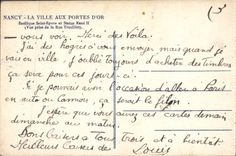 NANCY - LA VILLE AUX PORTES D'OR
Basilique Saint-Epvre et Statue René II
(Vue prise de la Rue Trouillet).
vous voir. Merci des Voila.
J'ai des à vous envoyer mais quand je
vais en ville j'oublie toujours d'acheter des timbres
ça sera pour ces jours-ci.
Si je pouvais avoir l'occasion d'aller à Paris
en auto ou camion, ça serait le filon.
J'espère que vous aurez ces cartes demain
dimanche au matin.
Bons Baisers à Tous trois et à bientôt
Meilleurs Baisers de Louis